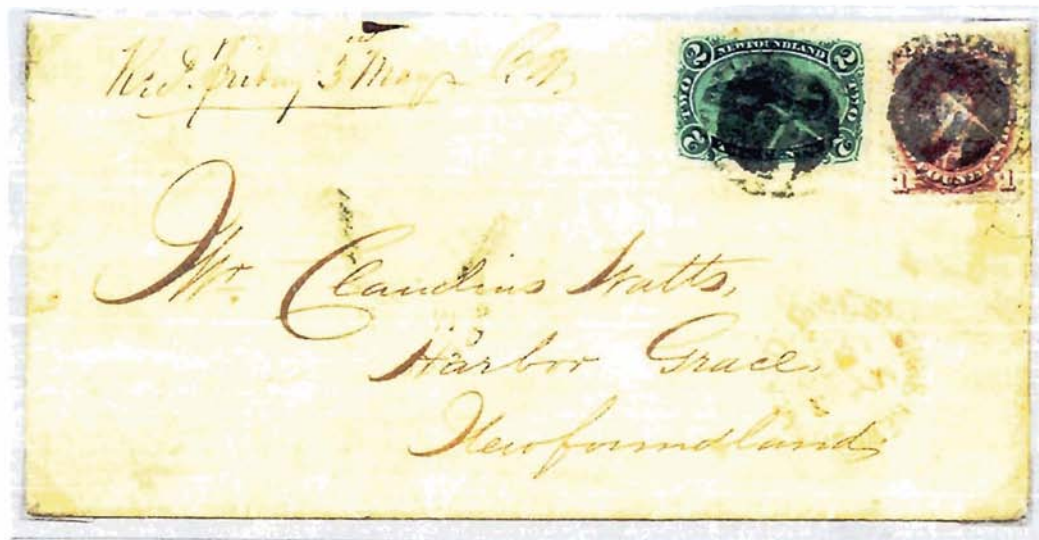 Rec'd. Friday 3rd May
2 NEWFOUNDLAND 2
TWO TWO
2 2
1 1
Mr. Claudius Watts,
Harbor Grace,
Newfoundland